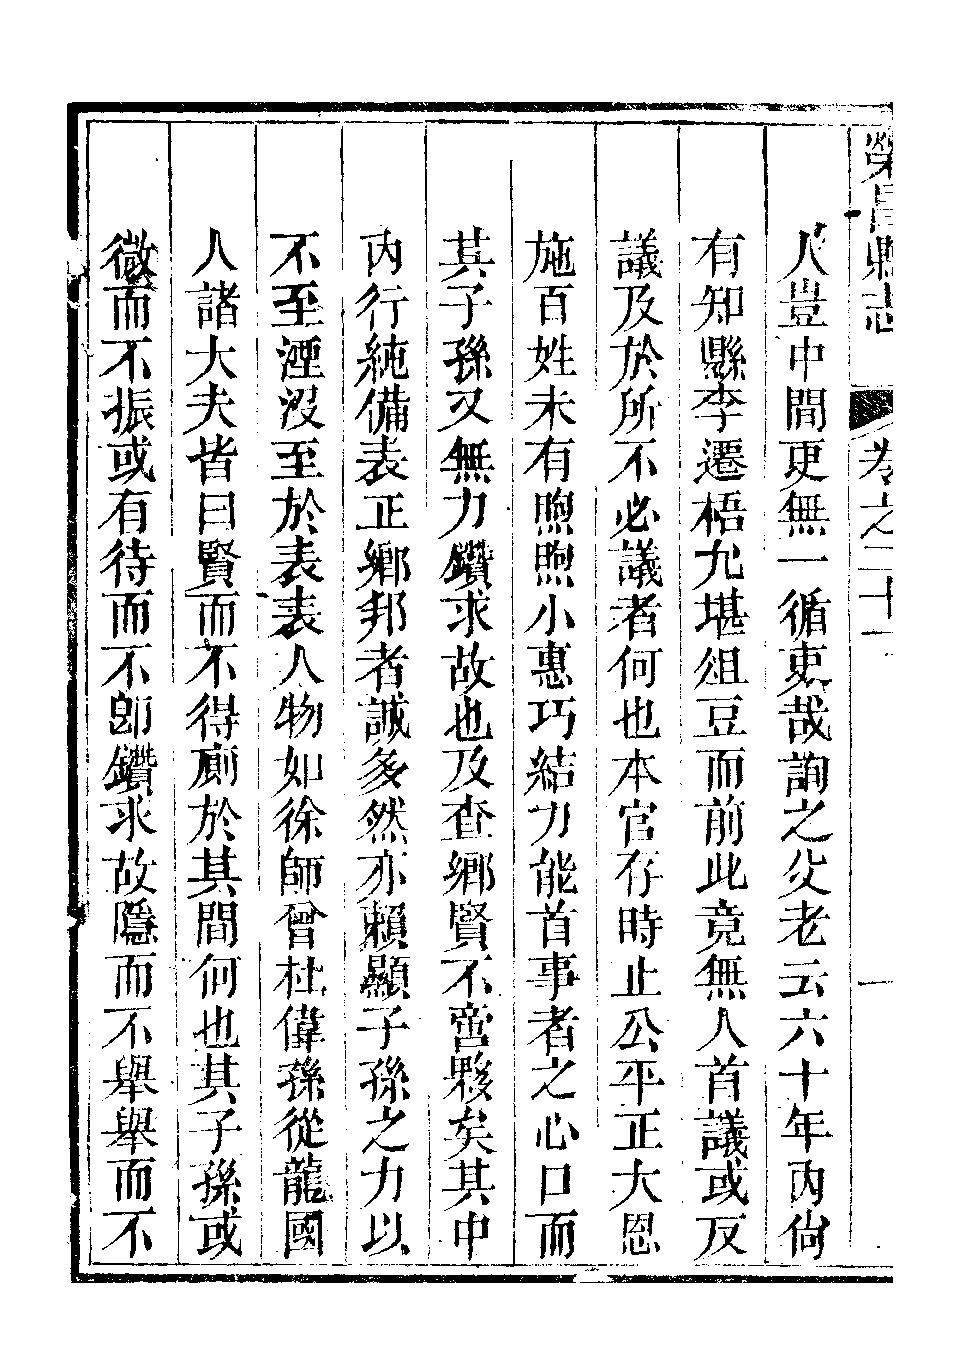 榮昌縣志 卷之二十一 一
人豈中間更無一循吏哉詢之父老云六十年內尙
有知縣李遷梧允堪俎豆而前此竟無人首議或反
議及於所不必議者何也本官存時止公平正大恩
施百姓未有煦煦小惠巧結力能首事者之心口而
其子孫又無力鑽求故也及查鄉賢不啻夥矣其中
內行純備表正鄉邦者誠多然亦賴顯子孫之力以
不至湮沒至於表表人物如徐師曾杜偉孫從龍國
人諸大夫皆曰賢而不得廁於其間何也其子孫或
微而不振或有待而不卽鑽求故隱而不舉舉而不